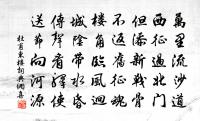 萬里流沙道
西征過北門
但添新戰骨
不返舊征魂
樓角臨風迥
城陰帶水昏
傳聲看驛使
送節向河源
杜甫東樓詞典網